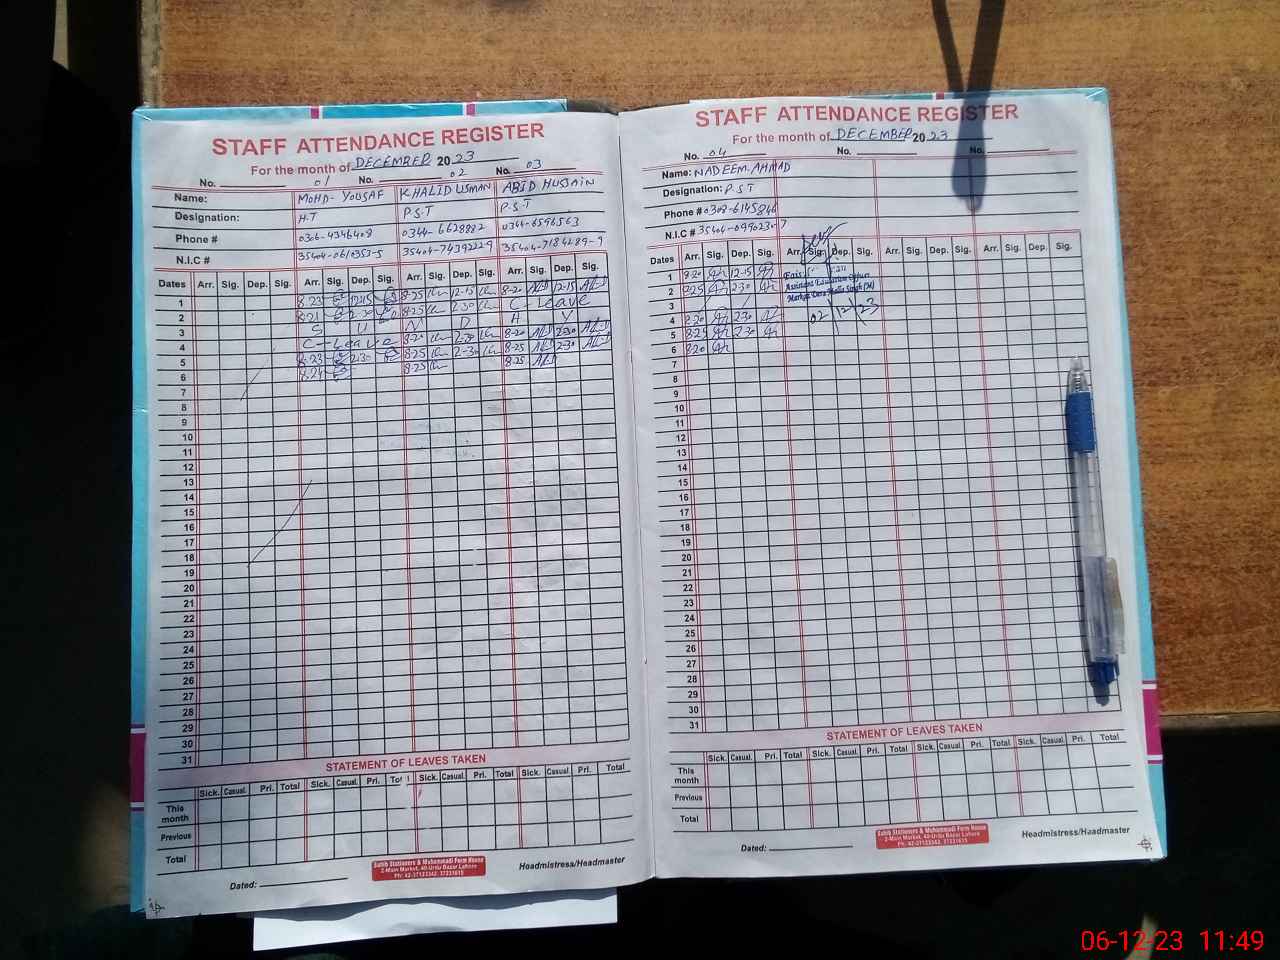 STAFF ATTENDANCE REGISTER
For the month of DECEMBER 2023
No. 01 No. 02 No. 03
Name: MOHD- YOUSAF KHALID USMAN ABID HUSSAIN
Designation: H.T P.S.T P.S.T
Phone # 0306-4346408 0344-6628882 0344-6596563
N.I.C # 35404-7439222-9 35404-7184289-9
Dates Arr. Sig. Dep. Sig. Arr. Sig. Dep. Sig. Arr. Sig. Dep. Sig. Arr. Sig. Dep. Sig.
1 8-23 12-15 8-25 12-15 8-20 12-15
2 8-21 2-30 8-25 2-30 C-Leave
3 S U N D A Y
4 C-Leave 8-20 2-30 8-20 2-30
5 8-23 2-30 8-25 2-30 8-25 2-30
6 8-24 8-25 8-25
7
8
9
10
11
12
13
14
15
16
17
18
19
20
21
22
23
24
25
26
27
28
29
30
31
STATEMENT OF LEAVES TAKEN
Sick. Casual. Pri. Total Sick. Casual. Pri. Total Sick. Casual. Pri. Total Sick. Casual. Pri. Total
This month
Previous
Total
Dated:
Sahib Stationers & Muhammadi Form House
2-Main Market, 40-Urdu Bazar Lahore
Ph: 42-37123342, 37231615
Headmistress/Headmaster
STAFF ATTENDANCE REGISTER
For the month of DECEMBER 2023
No. 04 No. No.
Name: NADEEM AHMAD
Designation: P.S.T
Phone # 0308-6145846
N.I.C # 35404-0990230-7
Dates Arr. Sig. Dep. Sig. Arr. Sig. Dep. Sig. Arr. Sig. Dep. Sig. Arr. Sig. Dep. Sig.
1 8-20 12-15
2 8-25 2-30
Assistant Education Officer
3
4 8-20 2-30
02/12/23
5 8-25 2-30
6 8-20
7
8
9
10
11
12
13
14
15
16
17
18
19
20
21
22
23
24
25
26
27
28
29
30
31
STATEMENT OF LEAVES TAKEN
Sick. Casual. Pri. Total Sick. Casual. Pri. Total Sick. Casual. Pri. Total Sick. Casual. Pri. Total
This month
Previous
Total
Dated:
Sahib Stationers & Muhammadi Form House
2-Main Market, 40-Urdu Bazar Lahore
Ph: 42-37123342, 37231615
Headmistress/Headmaster
06-12-23 11:49